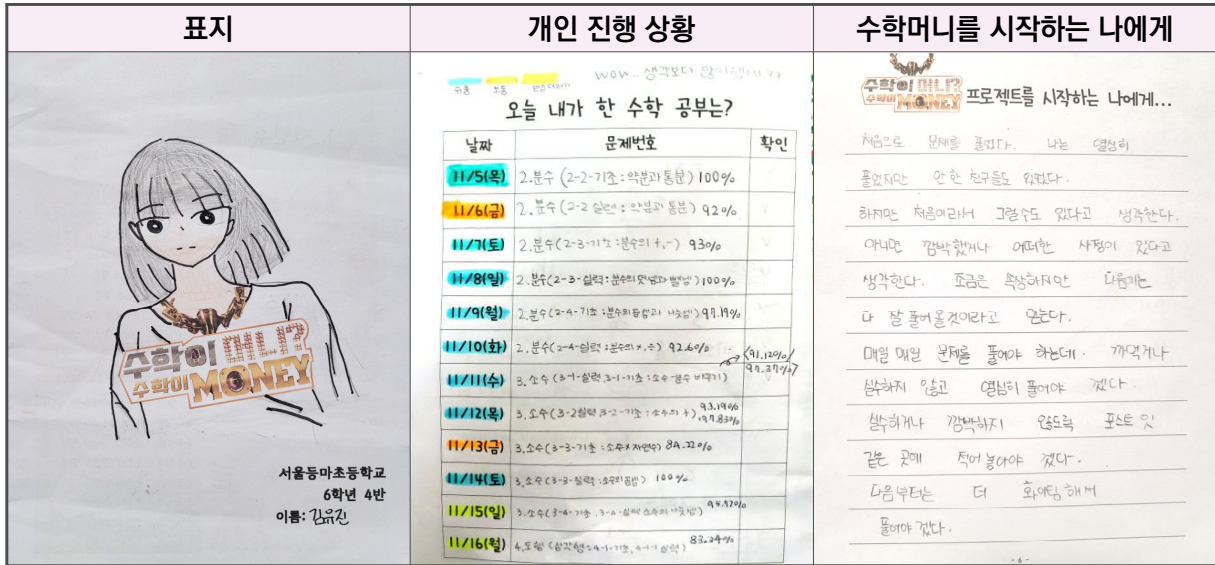 표지
개인 진행 상황
수학머니를 시작하는 나에게
수학이 머니?
수학이 MONEY
서울등마초등학교
6학년 4반
이름: 김유진
wow.. 생각보다 많이했네
쉬움 보통
오늘 내가 한 수학 공부는?
날짜 문제번호 확인
11/5(목) 2.분수 (2-2-기초:약분과 통분) 100%
11/6(금) 2.분수 (2-2 실력: 약분과 통분) 92%
11/7(토) 2.분수(2-3-기초:분수의 +,-) 93%
11/8(일) 2.분수(2-3-실력:분수의 덧셈과 뺄셈) 100%
11/9(월) 2.분수(2-4-기초:분수의 곱셈과 나눗셈) 97.19%
11/10(화) 2.분수(2-4-실력:분수의 ×,÷) 92.60%
11/11(수) 3.소수(3-1-실력,3-1-기초:소수-분수 바꾸기) (91.12%/97.37%)
11/12(목) 3.소수(3-2실력,3-2-기초:소수의 +) 93.19%, 97.83%
11/13(금) 3.소수(3-3-기초:소수×자연수) 84.22%
11/14(토) 3.소수(3-3-실력:소수의 곱셈) 100%
11/15(일) 3.소수(3-4-기초,3-4-실력 소수의 나눗셈) 94.92%
11/16(월) 4.도형 (삼각형:4-1-기초, 4-1-실력) 83.24%
수학이 머니?
수학이 MONEY 프로젝트를 시작하는 나에게...
처음으로 문제를 풀었다. 나는 열심히
풀었지만 안 한 친구들도 있었다.
하지만 처음이라서 그럴수도 있다고 생각한다.
아니면 깜박했거나 어떠한 사정이 있다고
생각한다. 조금은 속상하지만 다음에는
다 잘 풀어올것이라고 믿는다.
매일 매일 문제를 풀어야 하는데. 까먹거나
실수하지 않고 열심히 풀어야 겠다.
실수하거나 깜박하지 않도록 포스트 잇
같은 곳에 적어 놓아야 겠다.
다음부터는 더 화이팅 해서
풀어야 겠다.
- 6 -